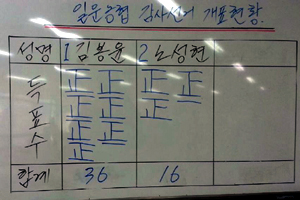 일운농협 감사선거 개표현황.
성명 1 김봉윤 2 노성현
득표수
正 正 正 正
正 正 正
正 正
正
합계 36 16